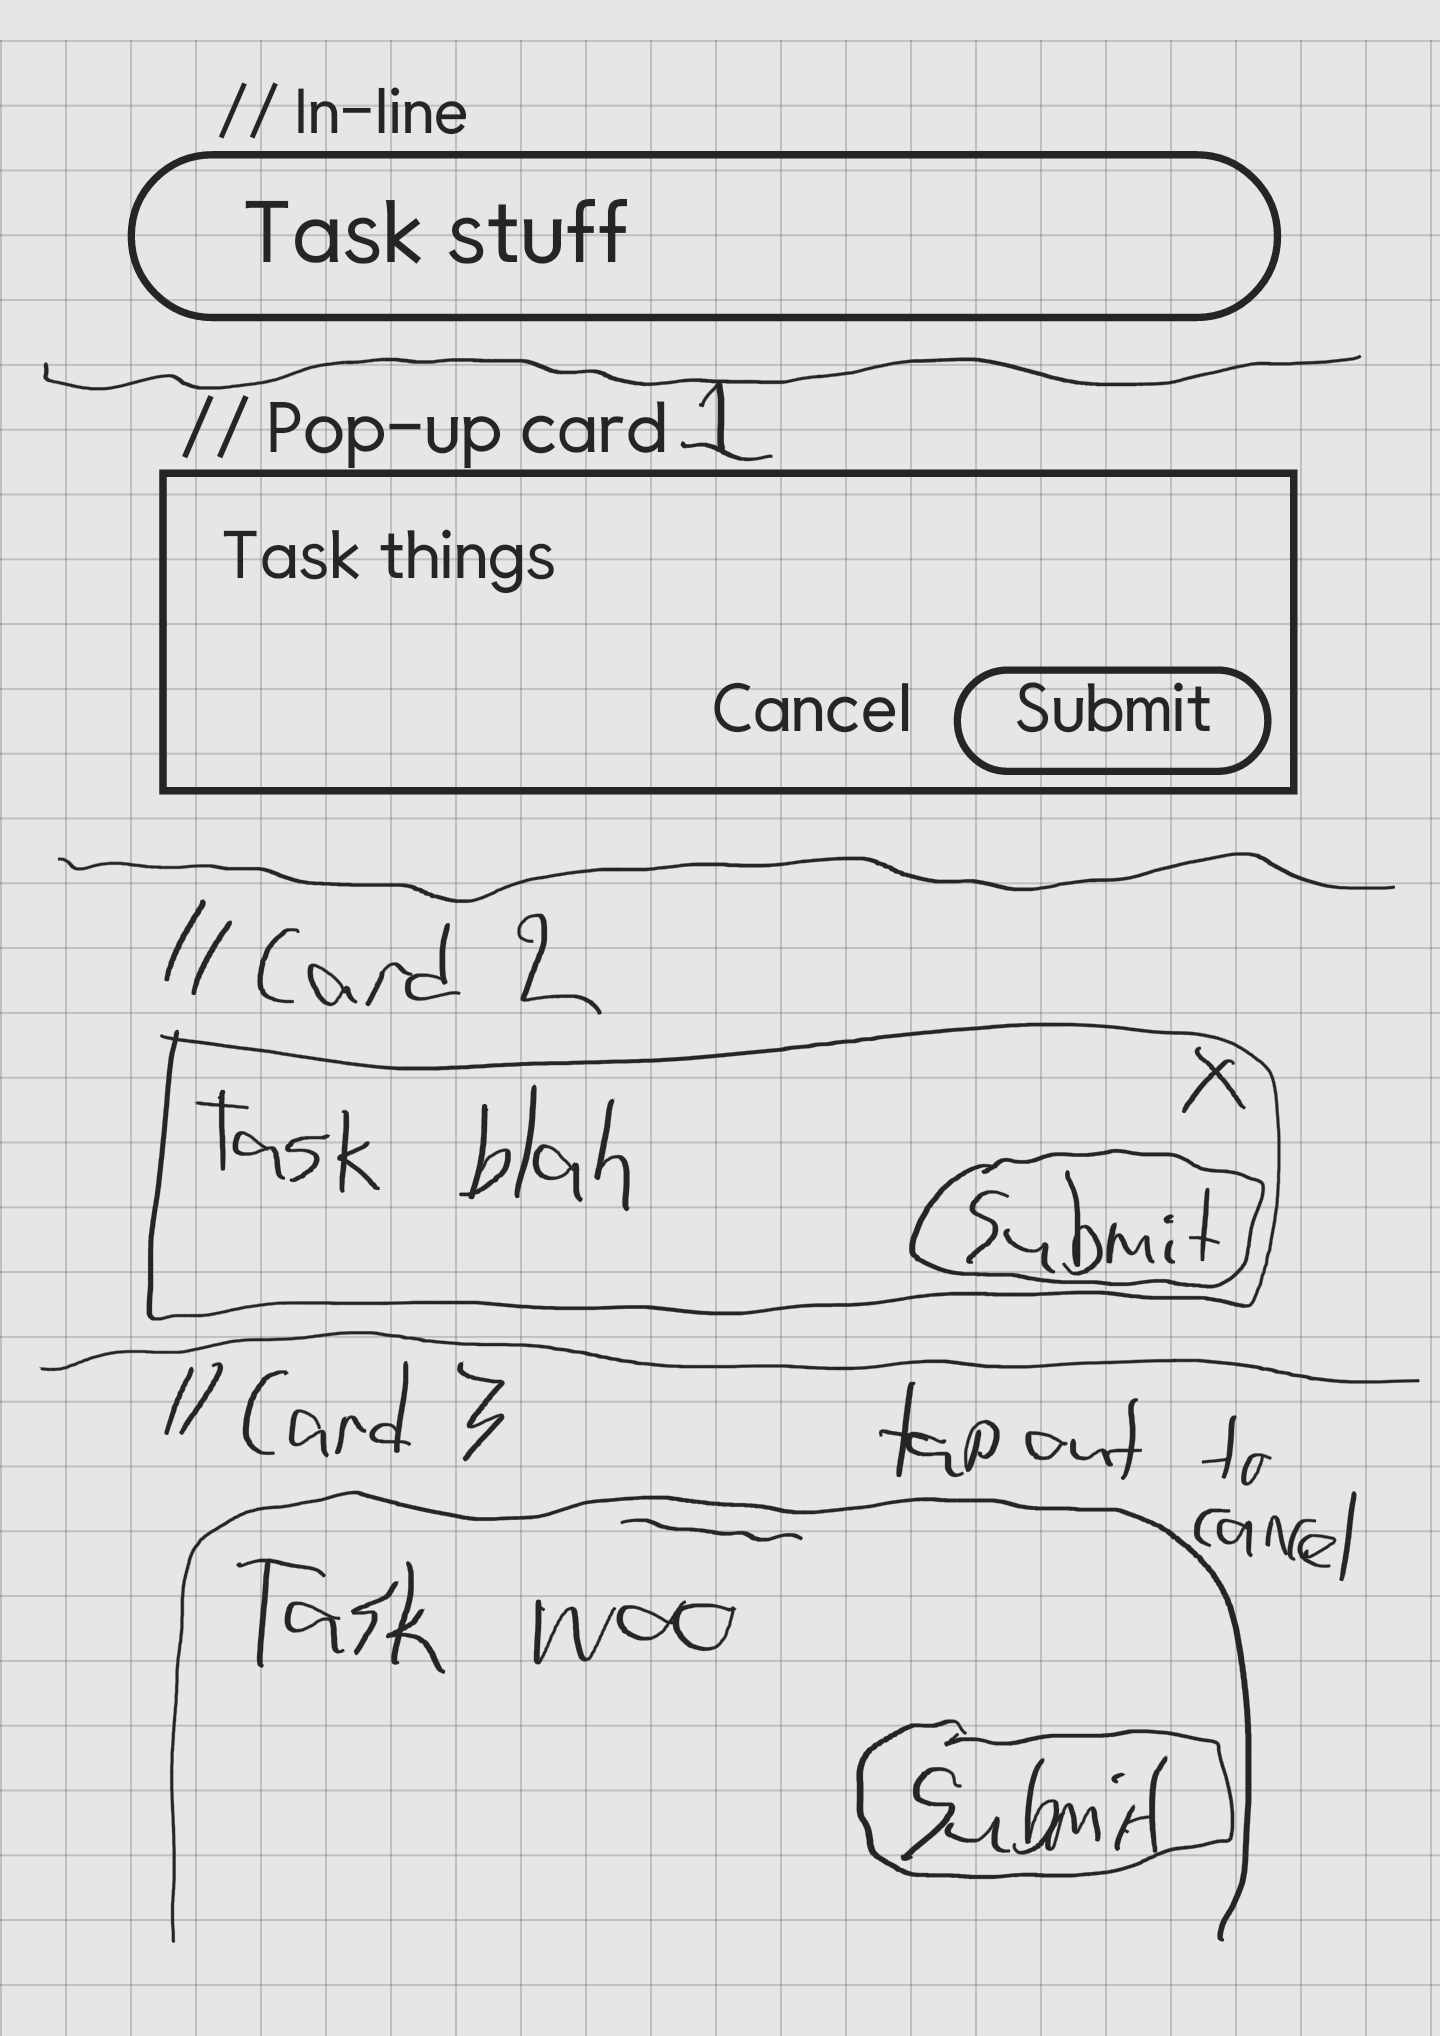 // In-line
Task stuff
// Pop-up card 1
Task things
Cancel Submit
// Card 2
X
Task blah
Submit
// Card 3
tap out to
cancel
Task woo
Submit